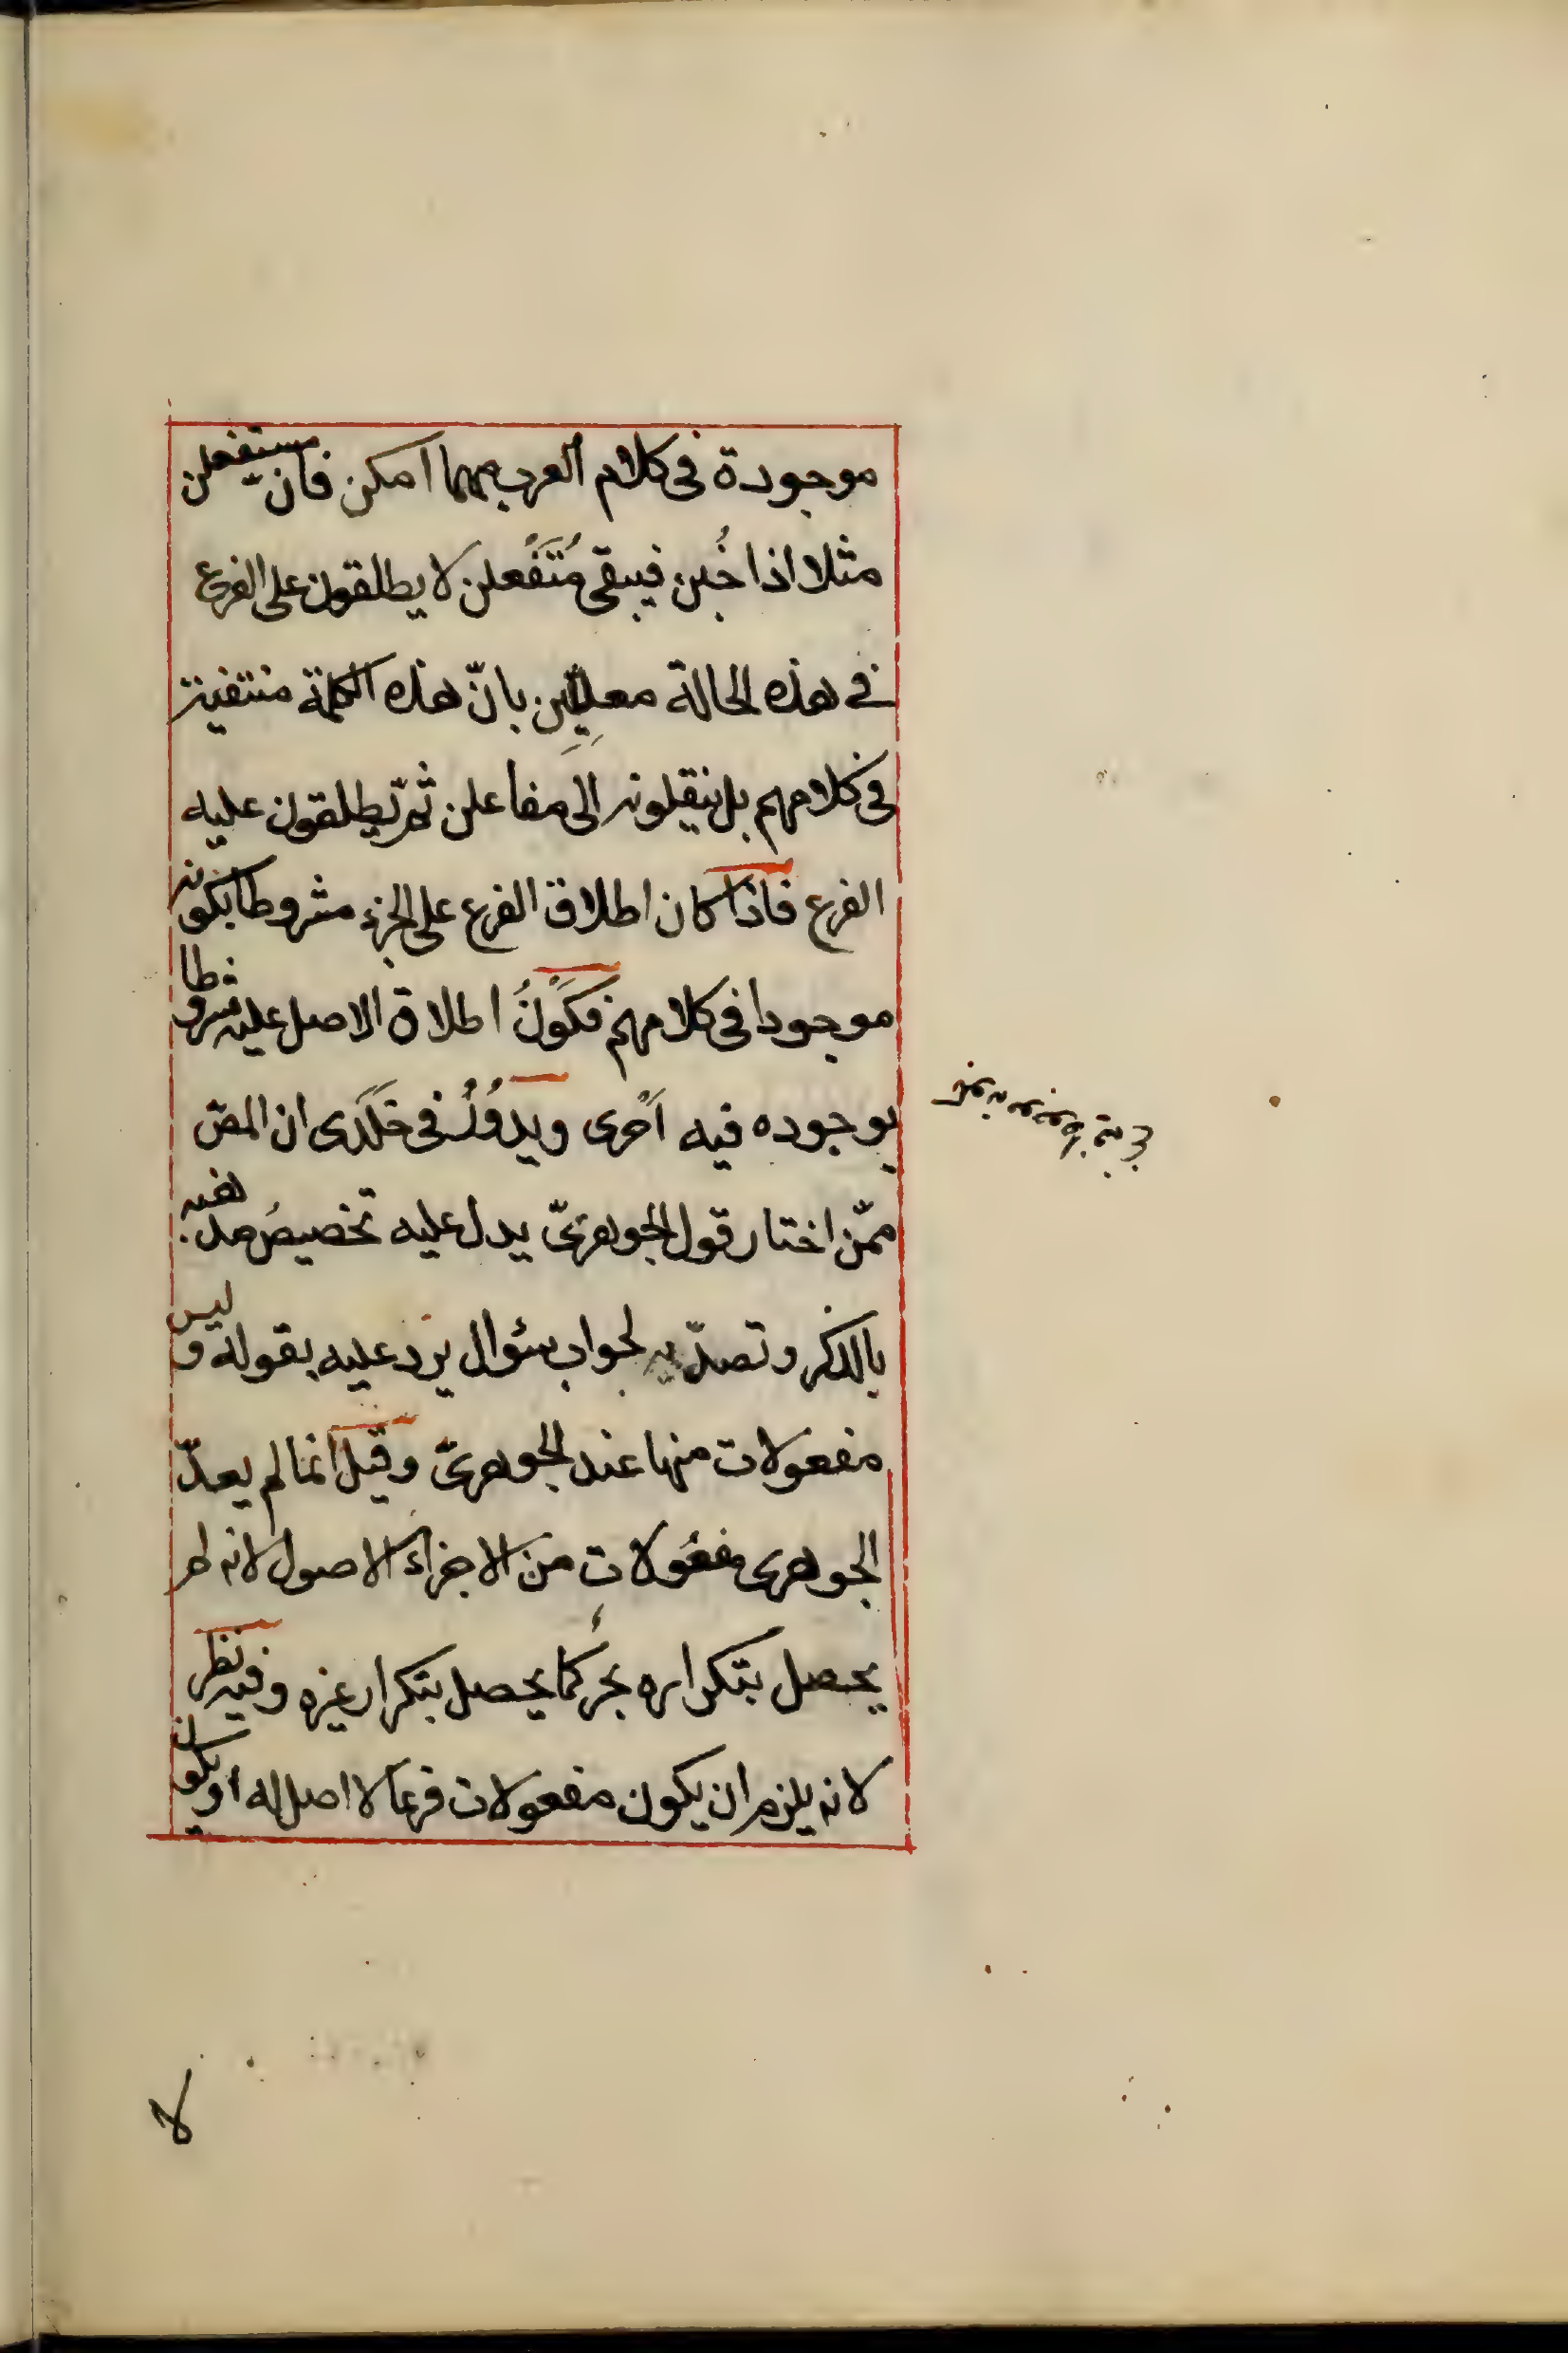 موجودة فى كلام العرب مهما امكن فان مستفعلن
مثلا اذا خُبن فيبقى مُتَفْعلن لا يطلقون على الفرع
فى هذه الحالة معلِّلين بانّ هذه الكلمة منتفية
فى كلامهم بل ينقلونه الى مفاعلن ثمّ يطلقون عليه
الفرع فاذا كان اطلاق الفرع على الجزء مشروطا بكونه
موجودا فى كلامهم فكَوْنُ اطلاق الاصل عليه مشروطا
بوجوده فيه اَحْرى ويدوُرُ فى خَلَدى ان المص
ممّن اختار قول الجوهرىّ يدل عليه تخصيصُ مذهبه
بالذكر وتصدّيه لجواب سئوال يرد عليه بقوله وليس
مفعولات منها عند الجوهرىّ وقيل انما لم يعدّ
الجوهرى مفعُولات من الاجزاء الاصول لانه لم
يحصل بتكراره بحر كما يحصل بتكرار غيره وفيه نظر
لانه يلزم ان يكون مفعولات فرعا لا اصل له او يكون
لا